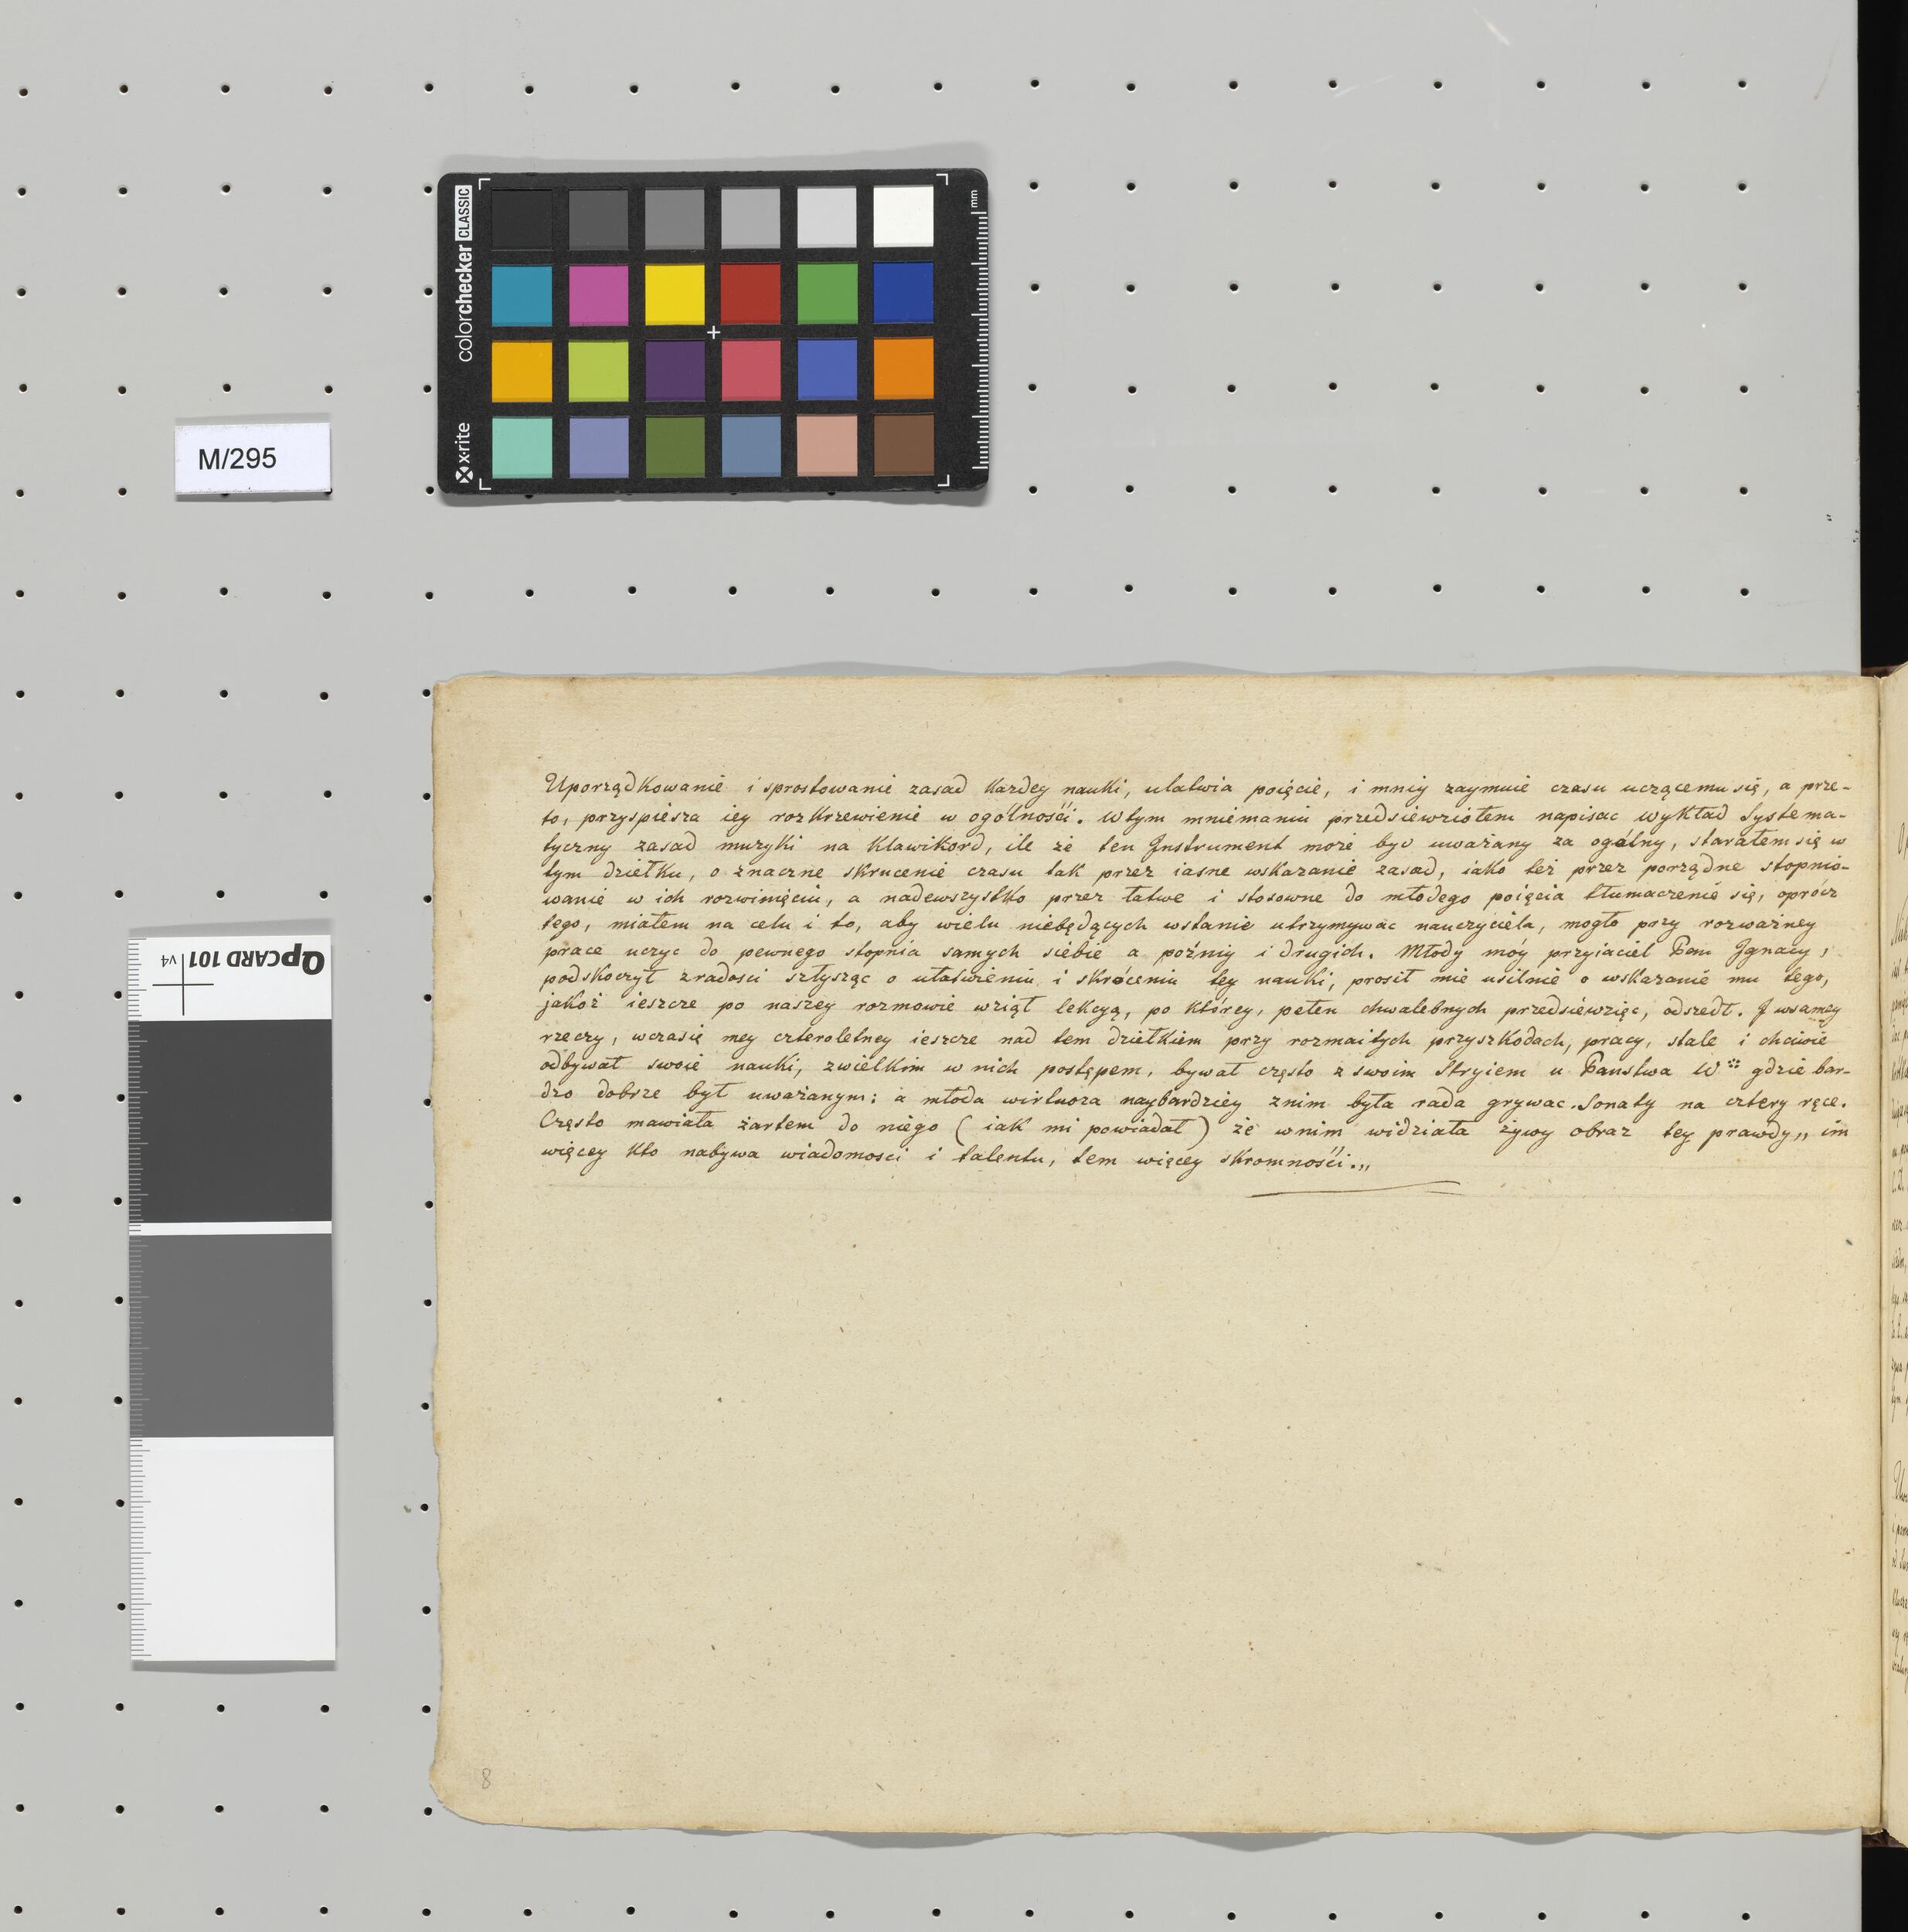 colorchecker CLASSIC
x-rite
mm
M/295
QPCARD 101 v4
Uporządkowanie i sprostowanie zasad każdey nauki, ułatwia poięcie, i mniey zaymuie czasu uczącemu się, a prze-
to, przyspiesza iey rozkrzewienie w ogólności. W tym mniemaniu przedsiewziołem napisac wykład Systema-
tyczny zasad muzyki na Klawikord, ile że ten Instrument może byc uważany za ogólny, starałem się w
tym dziełku, o znaczne skrucenie czasu tak przez iasne wskazanie zasad, iako też przez porządne stopnio-
wanie w ich rozwinięciu, a nadewszystko przez łatwe i stosowne do młodego poięcia tłumaczenie się, oprócz
tego, miałem na celu i to, aby wielu niebędących wstanie utrzymywac nauczyciela, mogło przy rozważney
prace uczyc do pewnego stopnia samych siebie a poźniy i drugich. Młody móy przyiaciel Pan Ignacy,
podskoczył z radosci szłysząc o ułatwieniu i skróceniu tey nauki, prosił mie usilnie o wskazanie mu tego,
jakoż ieszcze po naszey rozmowie wziął lekcyą, po którey, pełen chwalebnych przedsiewzięc, odszedł. I wsamey
rzeczy, wczasie mey czteroletney ieszcze nad tem dziełkiem przy rozmaitych przyszkodach, pracy, stale i chciwie
odbywał swoie nauki, zwielkim w nich postępem, bywał często z swoim Stryiem u Państwa W** gdzie bar-
dzo dobrze był uważanym: a młoda wirtuoza naybardziey znim była rada grywac Sonaty na cztery ręce.
Często mawiała żartem do niego (iak mi powiadał) że wnim widziała żywy obraz tey prawdy,, im
więcey kto nabywa wiadomosci i talentu, tem więcey skromności.,,
8